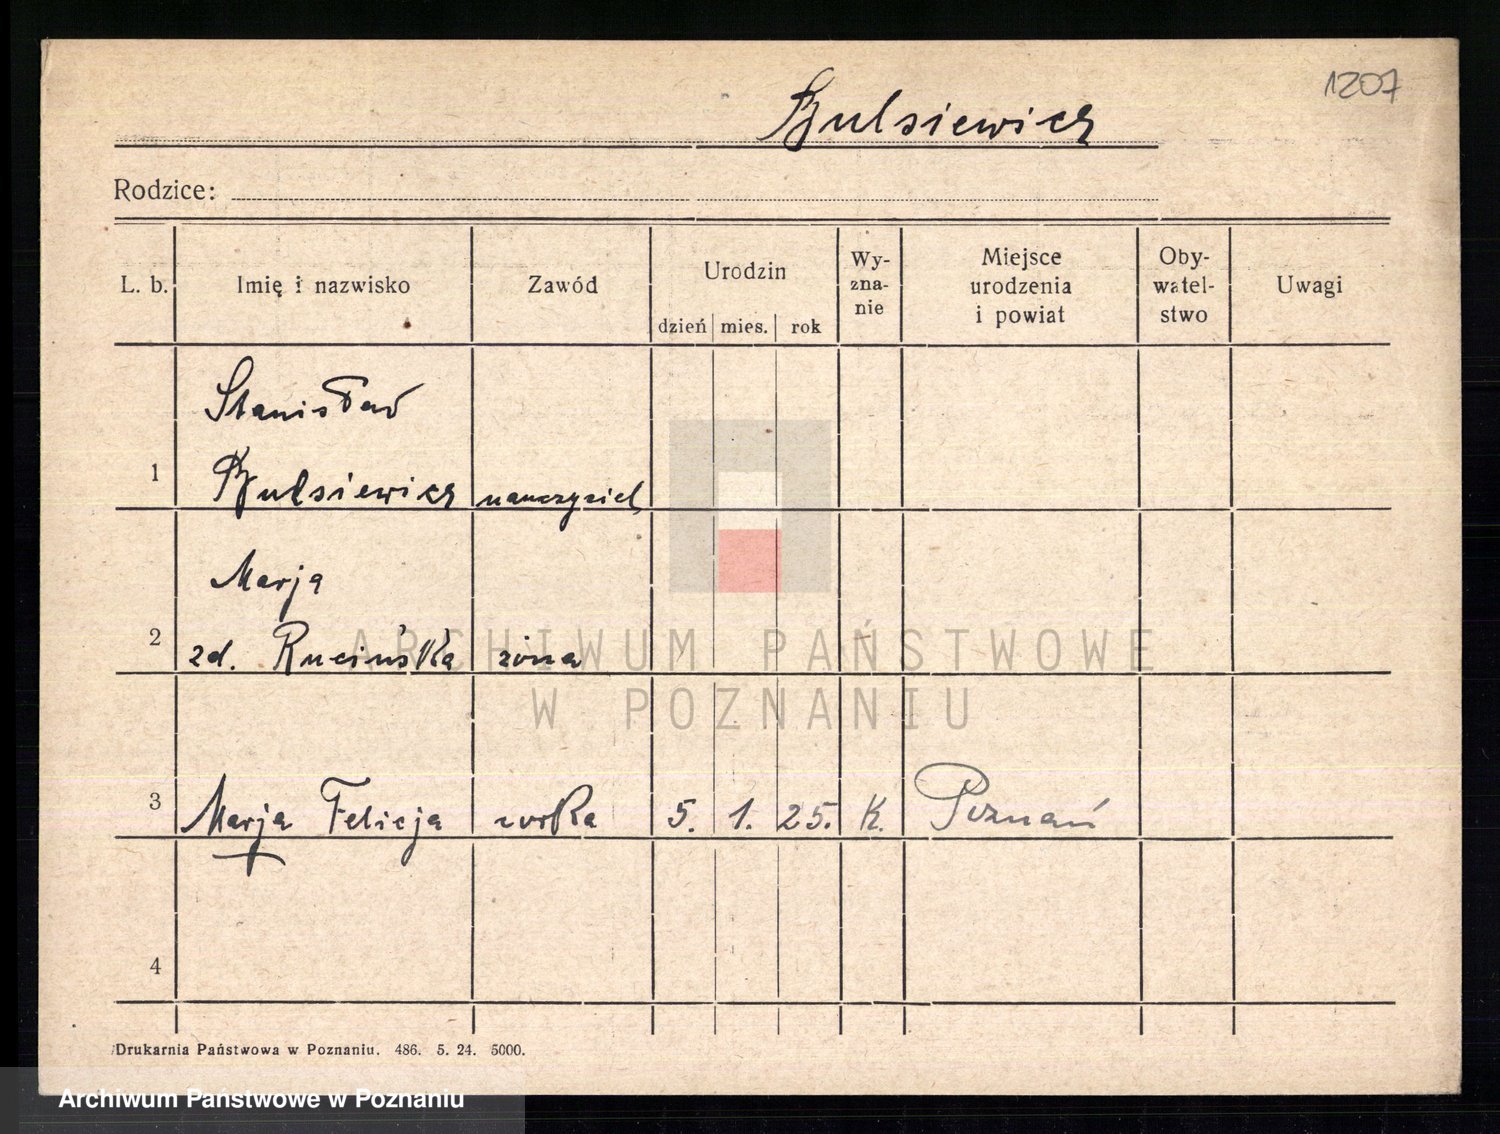 1207
Bulsiewicz
Rodzice:
L. b. Imię i nazwisko Zawód Urodzin dzień mies. rok Wy-zna-nie Miejsce urodzenia i powiat Oby-watel-stwo Uwagi
Stanisław
1 Bulsiewicz nauczyciel
Marja
2 zd. Rucińska żona
3 Marja Felicja córka 5. 1. 25. K. Poznań
4
ARCHIWUM PAŃSTWOWE
W POZNANIU
Drukarnia Państwowa w Poznaniu. 486. 5. 24. 5000.
Archiwum Państwowe w Poznaniu